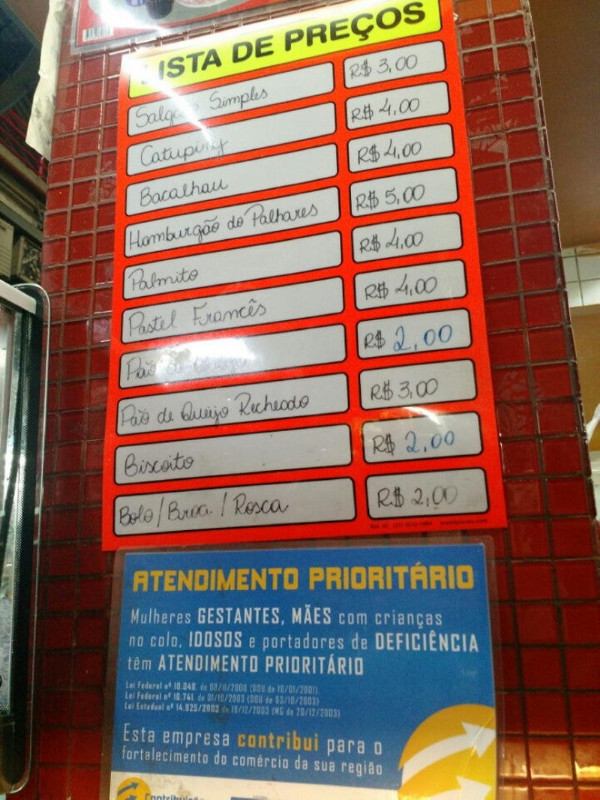 LISTA DE PREÇOS
Salgado Simples R$ 3,00
Catupiry R$ 4,00
Bacalhau R$ 4,00
Hamburgão do Palhares R$ 5,00
Palmito R$ 4,00
Pastel Francês R$ 4,00
Pão de Queijo R$ 2,00
Pão de Queijo Recheado R$ 3,00
Biscoito R$ 2,00
Bolo / Broa / Rosca R$ 2,00
ATENDIMENTO PRIORITÁRIO
Mulheres GESTANTES, MÃES com crianças
no colo, IDOSOS e portadores de DEFICIÊNCIA
têm ATENDIMENTO PRIORITÁRIO
Lei Federal nº 10.048, de 08/11/2000 (DOU de 10/01/2001)
Lei Federal nº 10.741, de 01/10/2003 (DOU de 03/10/2003)
Lei Estadual nº 14.925/2003 de 19/12/2003 (MG de 20/12/2003)
Esta empresa contribui para o
fortalecimento do comércio da sua região